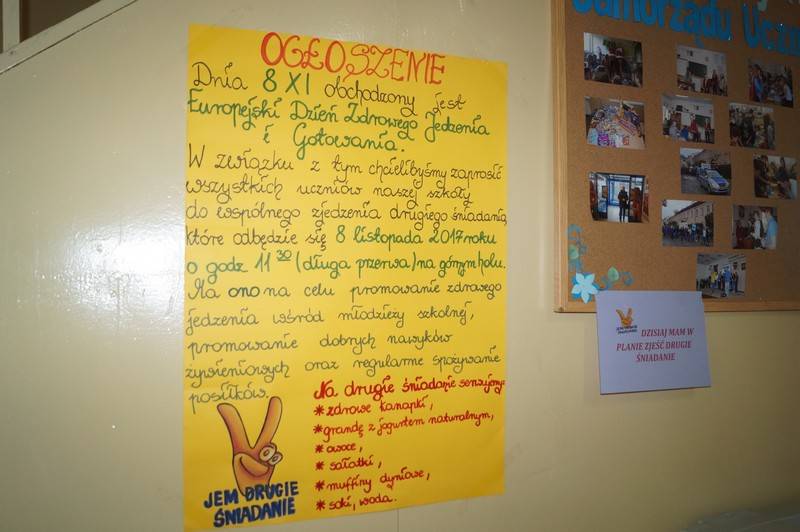 OGŁOSZENIE
Dnia 8 XI obchodzony jest
Europejski Dzień Zdrowego Jedzenia
i Gotowania.
W związku z tym chcielibyśmy zaprosić
wszystkich uczniów naszej szkoły
do wspólnego zjedzenia drugiego śniadania,
które odbędzie się 8 listopada 2017 roku
o godz 11³⁰ (długa przerwa) na górnym holu.
Ma ono na celu promowanie zdrowego
jedzenia wśród młodzieży szkolnej,
promowanie dobrych nawyków
żywieniowych oraz regularne spożywanie
posiłków.
Na drugie śniadanie serwujemy:
* zdrowe kanapki,
* grandę z jogurtem naturalnym,
* owoce,
* sałatki,
* muffiny dyniowe,
* soki, woda.
JEM DRUGIE
ŚNIADANIE
Samorządu Uczn
JEM DRUGIE
ŚNIADANIE
DZISIAJ MAM W
PLANIE ZJEŚĆ DRUGIE
ŚNIADANIE